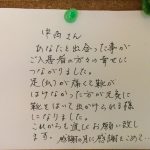 中西さん
あなたと出会った事が
ご入居者の方々の幸せに
つながりました。
足(爪)が痛くて靴が
はけなかった方が元気に
靴をはいて出かけられる様
になりました。
これからも宜しくお願い致し
ます。感謝の月に感謝をこめて…